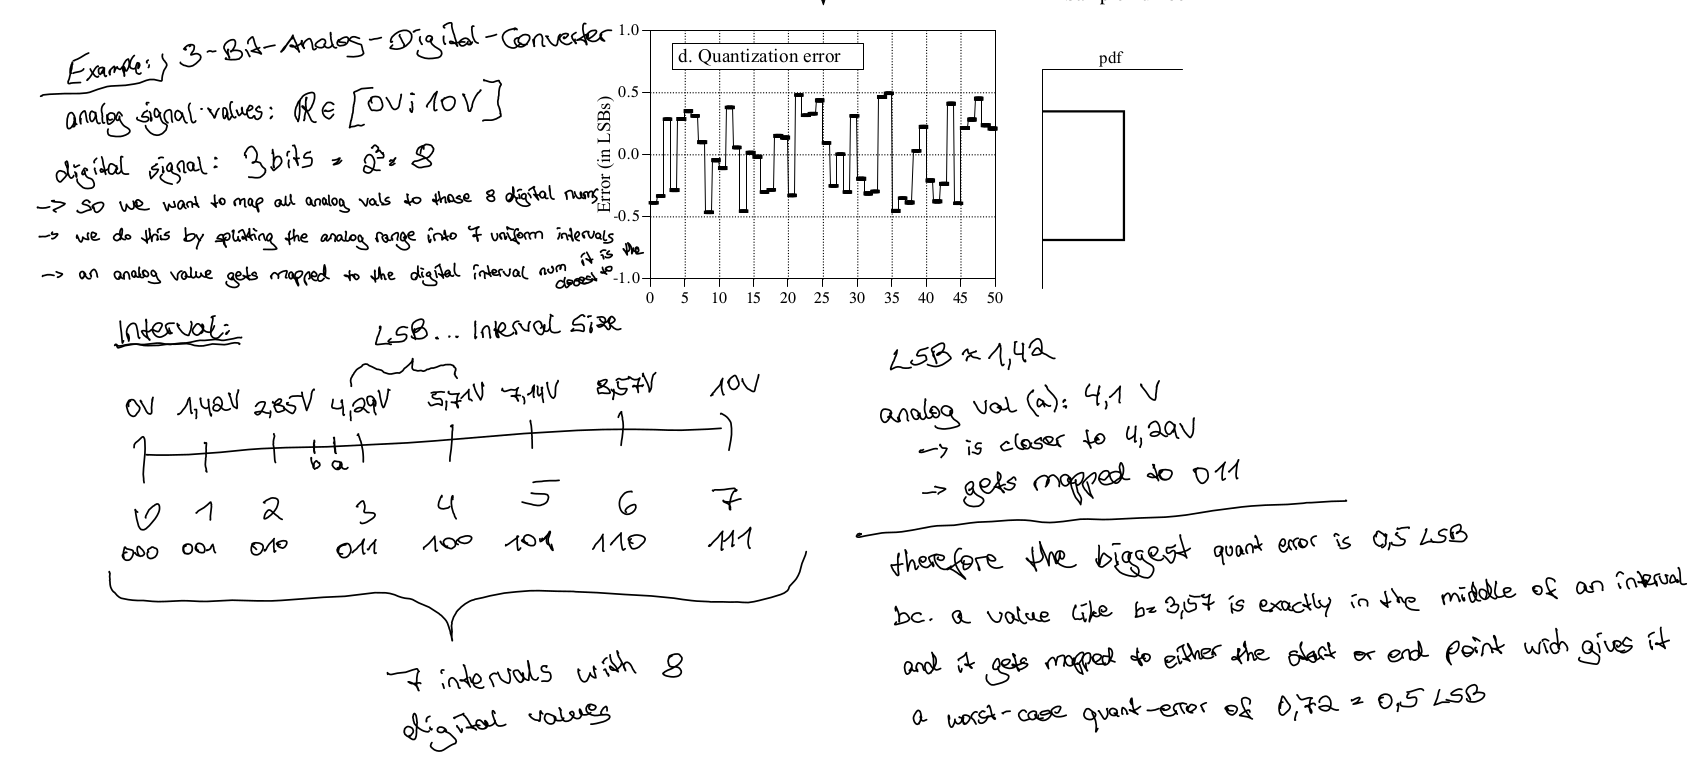 Example: 3-Bit-Analog-Digital-Converter
analog signal values: ℝ ∈ [0V; 10V]
digital signal: 3 bits = 2³ = 8
-> so we want to map all analog vals to those 8 digital nums
-> we do this by splitting the analog range into 7 uniform intervals
-> an analog value gets mapped to the digital interval num it is the closest to
d. Quantization error
Error (in LSBs)
1.0
0.5
0.0
-0.5
-1.0
0 5 10 15 20 25 30 35 40 45 50
pdf
Interval:
LSB... Interval Size
0V 1,42V 2,85V 4,29V 5,71V 7,14V 8,57V 10V
b a
0 1 2 3 4 5 6 7
000 001 010 011 100 101 110 111
7 intervals with 8
digital values
LSB ≈ 1,42
analog val (a): 4,1 V
-> is closer to 4,29V
-> gets mapped to 011
therefore the biggest quant error is 0,5 LSB
bc. a value like b= 3,57 is exactly in the middle of an interval
and it gets mapped to either the start or end point wich gives it
a worst-case quant-error of 0,72 = 0,5 LSB